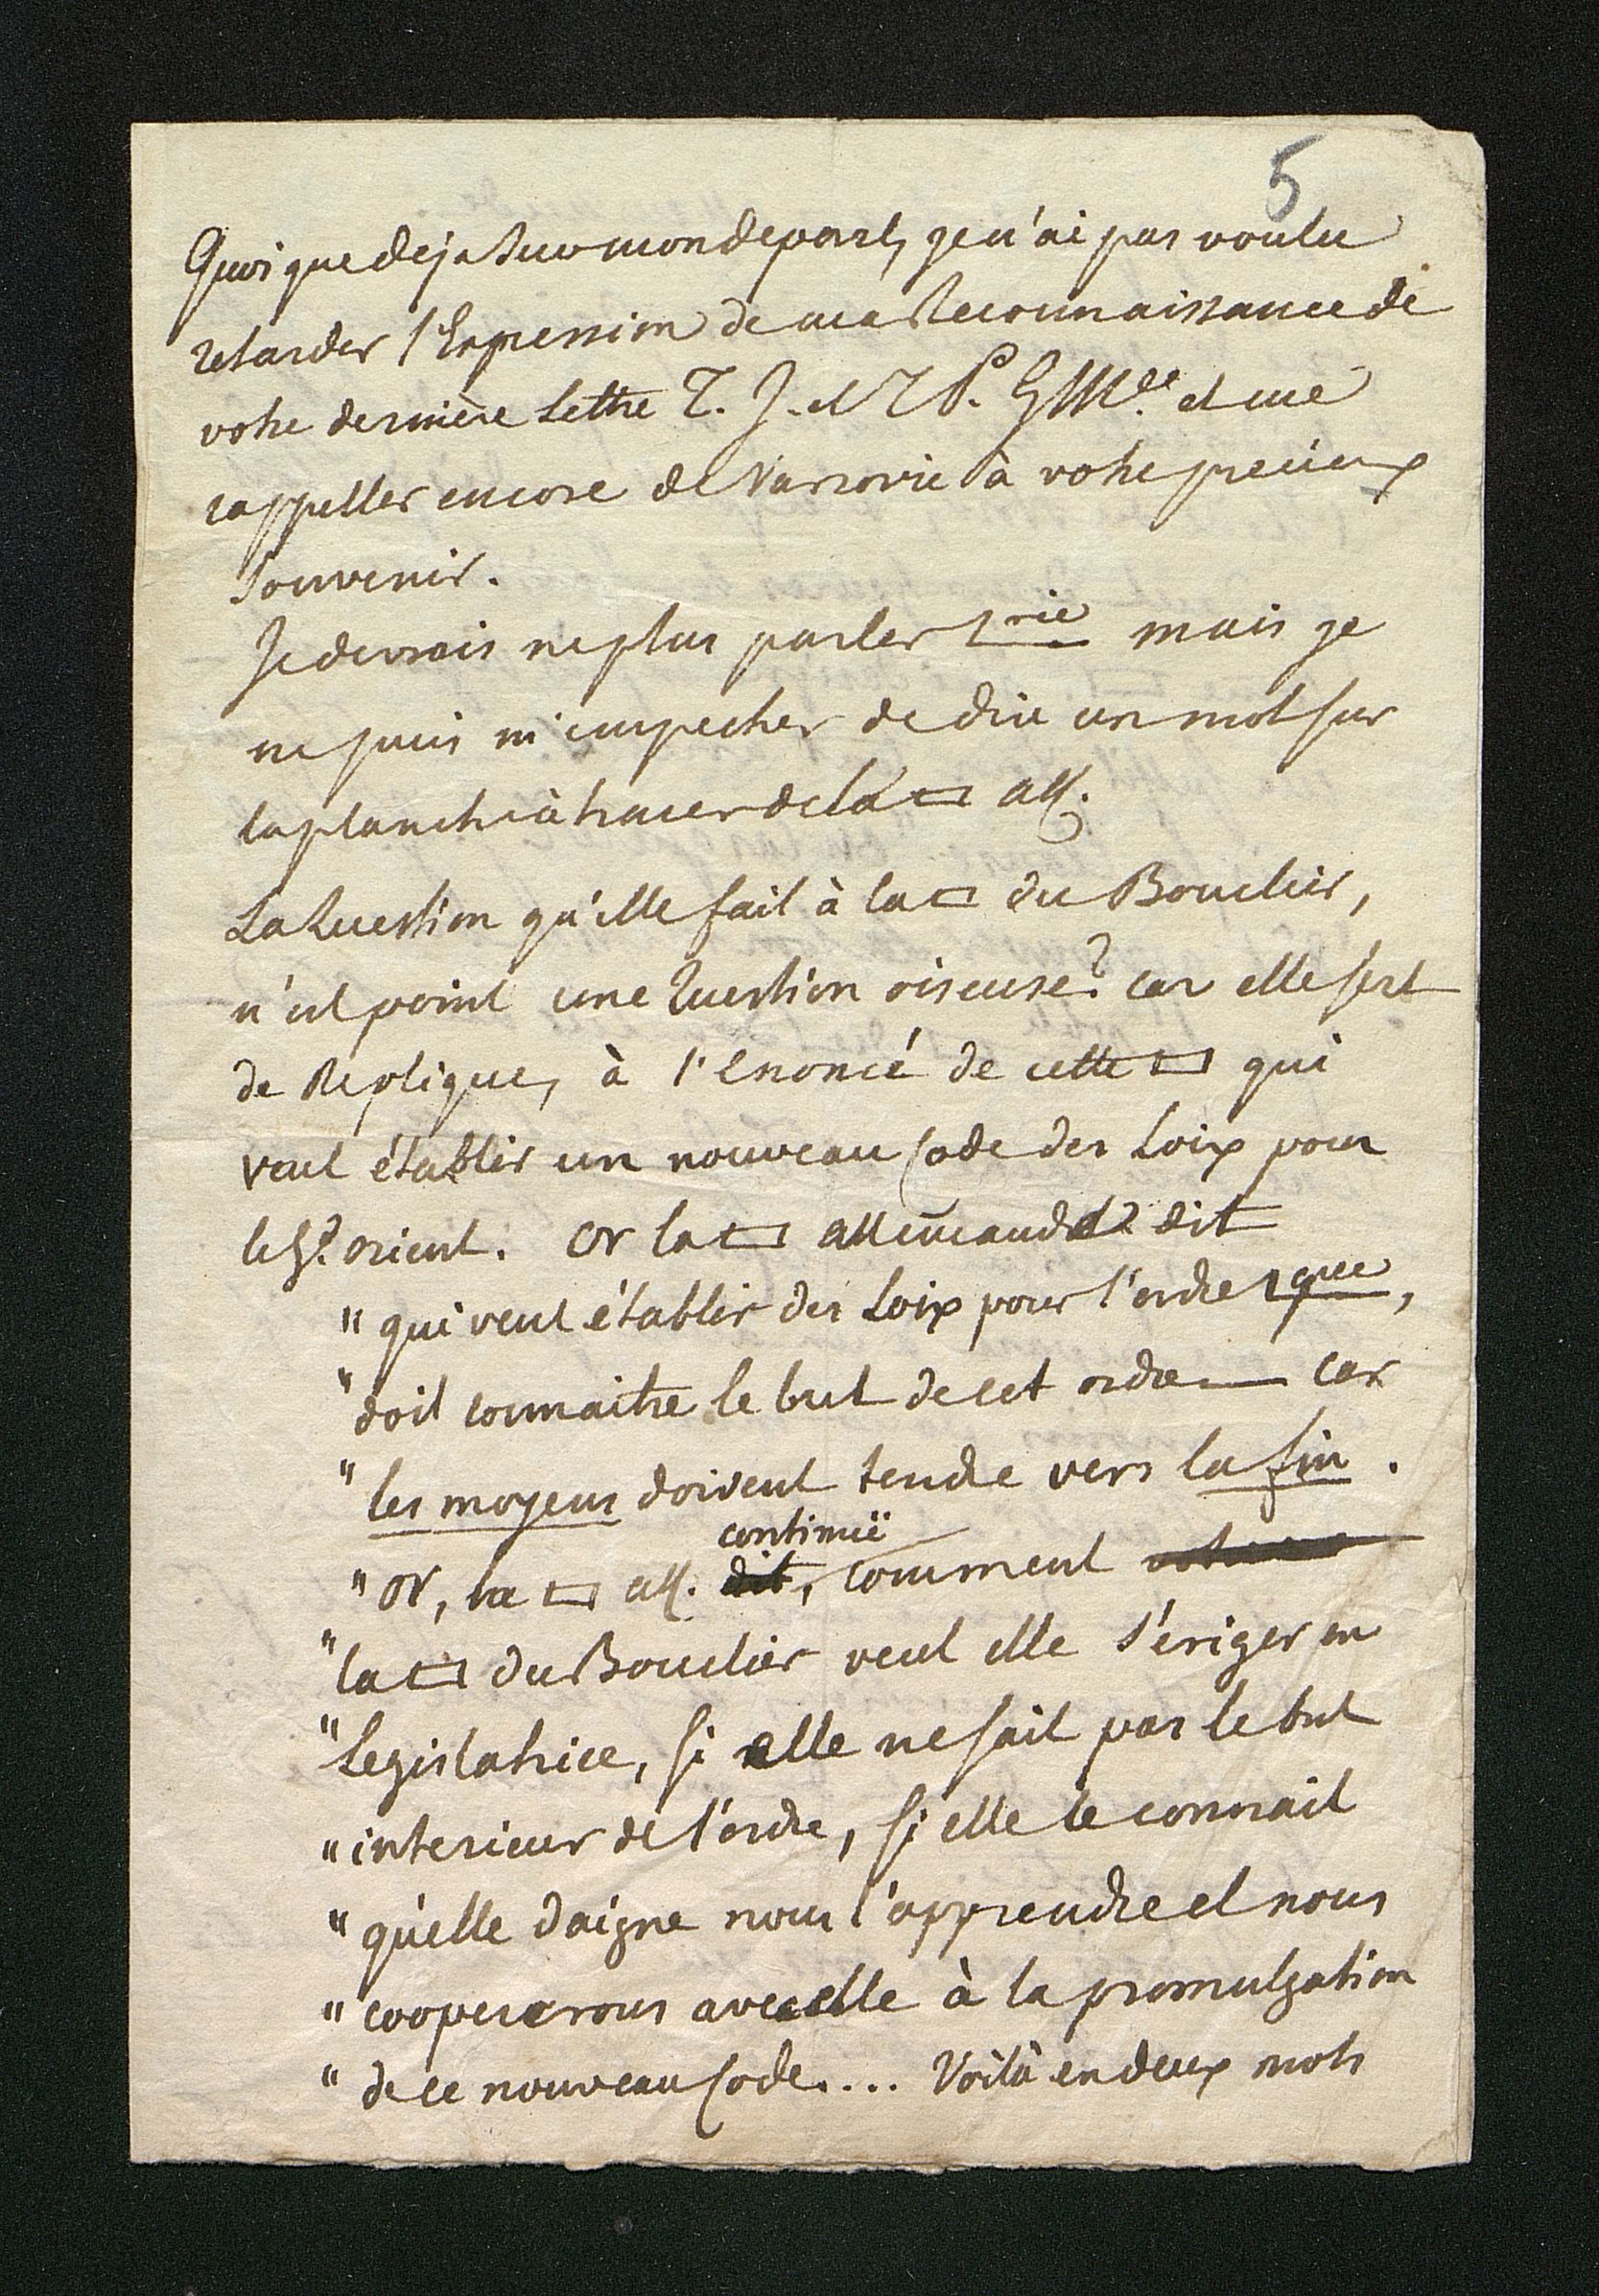 5
Quoique deja sur mon depart, je n'ai pas voulu
retarder l'Expression de ma Reconnaissance de
votre derniere Lettre T. J. et T P. G M.de et me
rappeller encore de Varsovie à votre precieux
Souvenir.
Je devrois ne plus parler mais je
ne puis m'empecher de dire un mot sur
la planche à tracer de la □ all.
La Question qu'elle fait à la □ du Bouclier,
n'est point une Question oiseuse? car elle sert
de Replique, à l'enoncé de cette □ qui
veut établir un nouveau Code des Loix pour
le G.d orient. Or la □ allemande dit
" qui veut établir des Loix pour l'ordre que,
" doit connaitre le but de cet ordre — Car
" les moyens doivent tendre vers la fin.
continuë
" Or, la □ all. dit, comment
" la □ du Bouclier veut elle s'eriger en
" Legislatrice, si elle ne sait pas le but
" interieur de l'ordre, si elle le connait
" qu'elle daigne nous l'apprendre et nous
" cooperrons avec elle à la promulgation
" de ce nouveau Code.... Voilà en deux mots